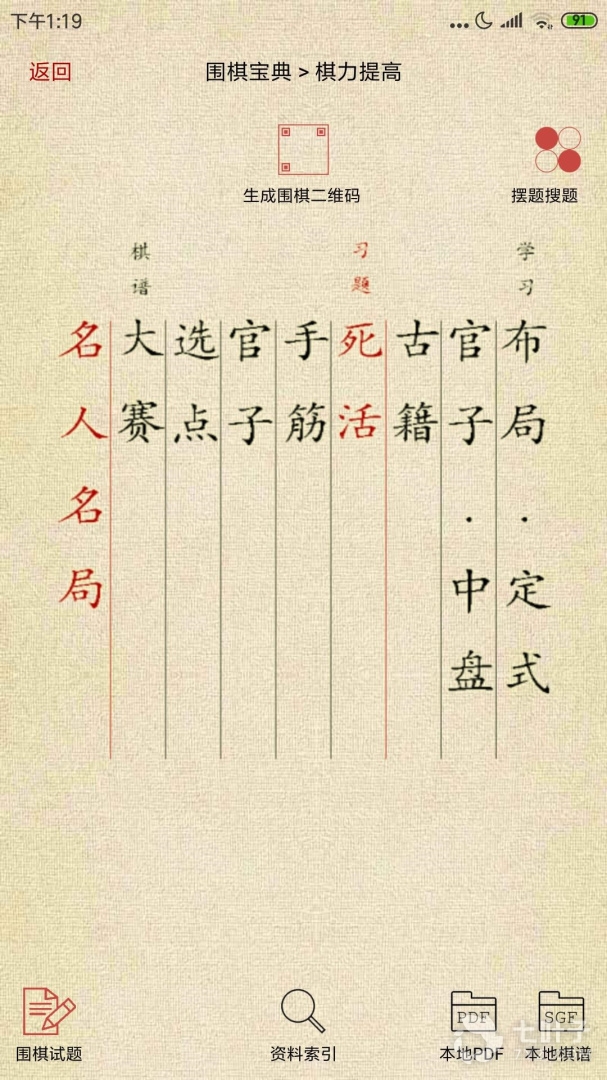 下午1:19
91
返回
围棋宝典 > 棋力提高
生成围棋二维码
摆题搜题
学习
布局·定式
官子·中盘
古籍
习题
死活
手筋
官子
选点
棋谱
大赛
名人名局
PDF
SGF
围棋试题
资料索引
本地PDF
本地棋谱